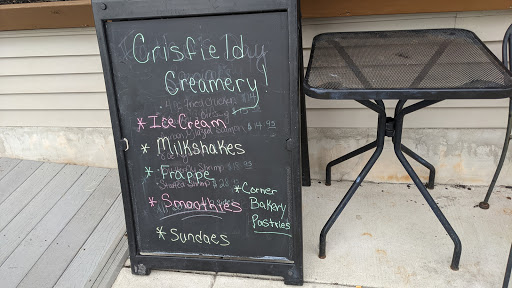 Crisfield
Creamery!
* Ice Cream
$14.95
* Milkshakes
* Frappe
* Smoothies
* Sundaes
* Corner
Bakery
Pastries